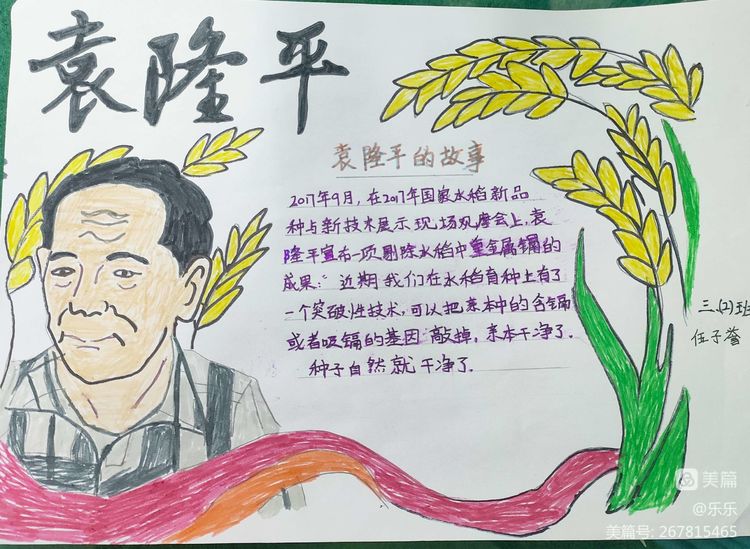 袁隆平
袁隆平的故事
2017年9月，在2017年国家水稻新品
种与新技术展示现场观摩会上，袁
隆平宣布一项剔除水稻中重金属镉的
成果：“近期我们在水稻育种上有了
一个突破性技术，可以把亲本中的含镉
或者吸镉的基因敲掉，亲本干净了，
种子自然就干净了。
三、(2)班
伍子誉
美篇
@乐乐
美篇号: 267815465